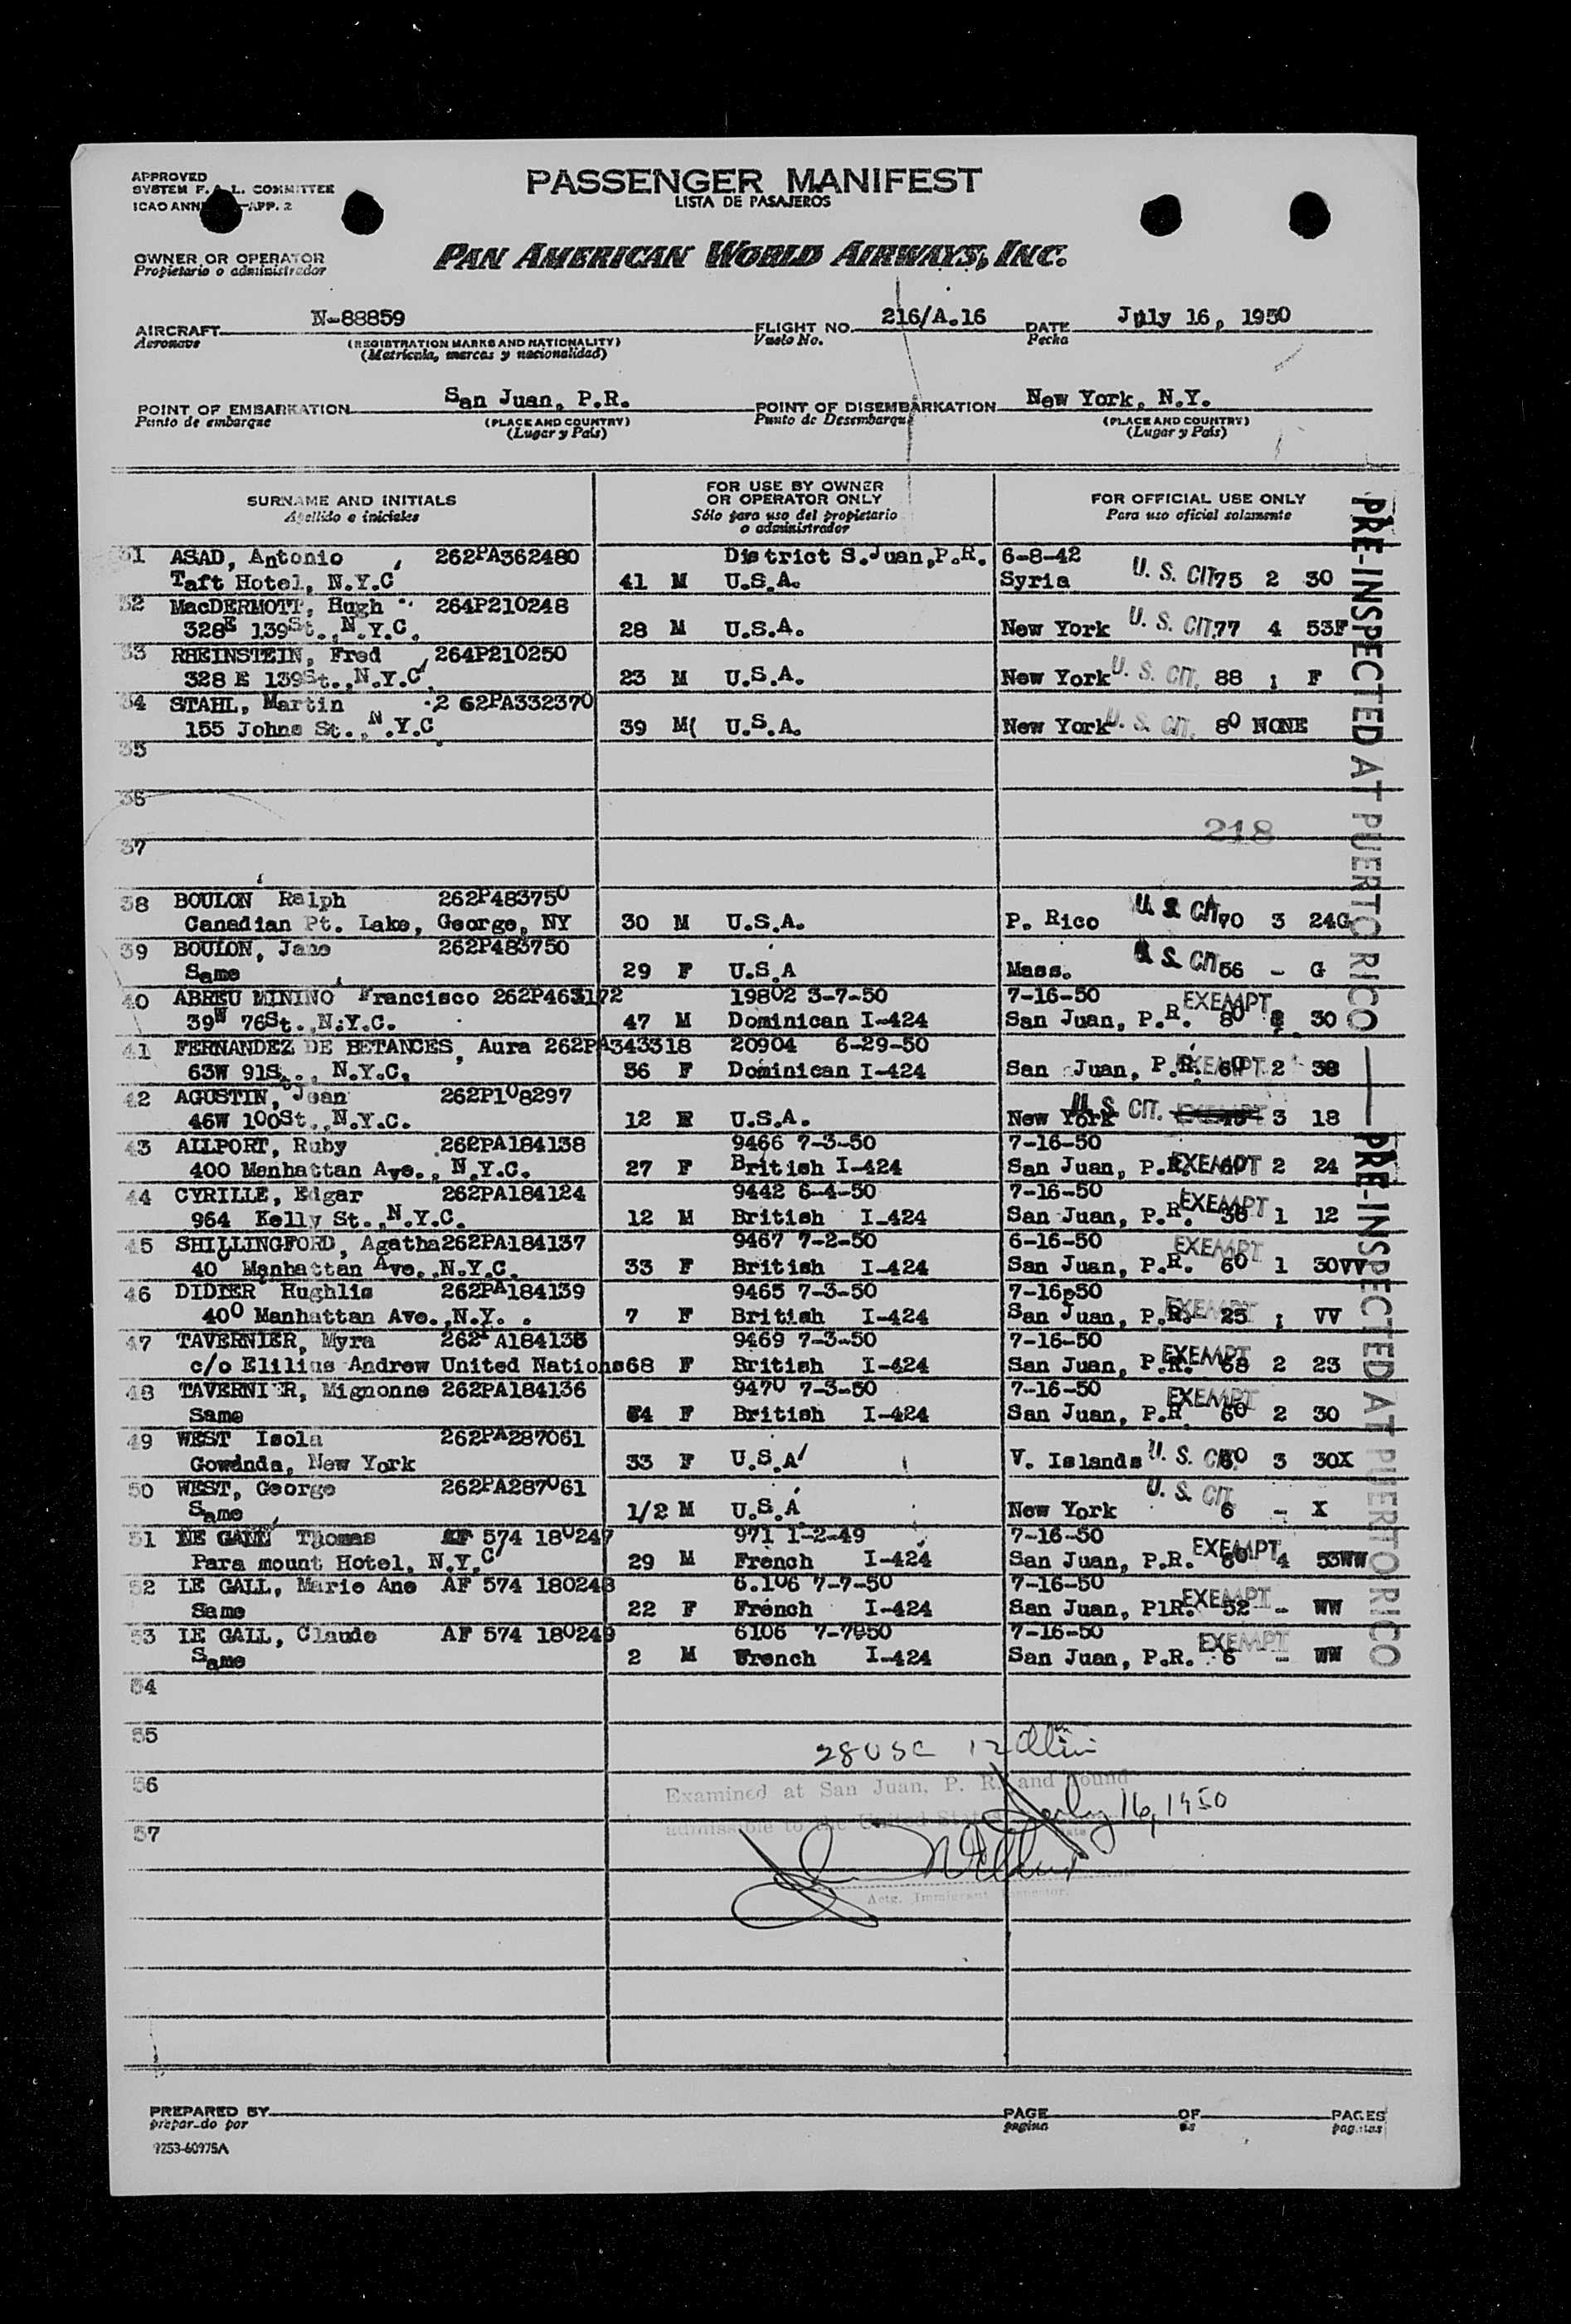 APPROVED
SYSTEM F.A.L. COMMITTEE
ICAO ANN APP. 2
PASSENGER MANIFEST
LISTA DE PASAJEROS
OWNER OR OPERATOR
Propietario o administrador
PAN AMERICAN WORLD AIRWAYS, INC.
AIRCRAFT N-88859 FLIGHT NO. 216/A.16 DATE July 16, 1950
Aeronave (REGISTRATION MARKS AND NATIONALITY) Vuelo No. Fecha
(Matrícula, marcas y nacionalidad)
POINT OF EMBARKATION San Juan, P.R. POINT OF DISEMBARKATION New York, N.Y.
Punto de embarque (PLACE AND COUNTRY) Punto de Desembarque (PLACE AND COUNTRY)
(Lugar y País) (Lugar y País)
SURNAME AND INITIALS FOR USE BY OWNER OR OPERATOR ONLY FOR OFFICIAL USE ONLY
Apellido e iniciales Sólo para uso del propietario o administrador Para uso oficial solamente
31 ASAD, Antonio 262PA362480 District S.Juan,P.R. 6-8-42
Taft Hotel, N.Y.C 41 M U.S.A. Syria U. S. CIT 75 2 30
32 MacDERMOTT, Hugh 264P210248
328E 139St., N.Y.C. 28 M U.S.A. New York U. S. CIT. 77 4 53F
33 RHEINSTEIN, Fred 264P210250
328 E 139St., N.Y.C. 23 M U.S.A. New York U. S. CIT. 88 ; F
34 STAHL, Martin 2 62PA332370
155 Johns St., N.Y.C 39 M( U.S.A. New York U. S. CIT. 80 NONE
35
36
218
37
38 BOULON Ralph 262P483750
Canadian Pt. Lake, George, NY 30 M U.S.A. P. Rico U. S. CIT 90 3 24G
39 BOULON, Jane 262P483750
Same 29 F U.S.A Mass. U. S. CIT 56 - G
40 ABREU MININO Francisco 262P463172 19802 3-7-50 7-16-50
39W 76St., N.Y.C. 47 M Dominican I-424 San Juan, P.R. EXEMPT 80 30
41 FERNANDEZ DE BETANCES, Aura 262PA343318 20904 6-29-50
63W 91St., N.Y.C. 36 F Dominican I-424 San Juan, P.R. EXEMPT 60 2 38
42 AGUSTIN, Jean 262P108297
46W 100St., N.Y.C. 12 U.S.A. New York U. S. CIT. 3 18
43 ALLPORT, Ruby 262PA184138 9466 7-3-50 7-16-50
400 Manhattan Ave., N.Y.C. 27 F British I-424 San Juan, P.R. EXEMPT 2 24
44 CYRILLE, Edgar 262PA184124 9442 6-4-50 7-16-50
964 Kelly St., N.Y.C. 12 M British I-424 San Juan, P.R. EXEMPT 36 1 12
45 SHILLINGFORD, Agatha 262PA184137 9467 7-2-50 6-16-50
40 Manhattan Ave., N.Y.C. 33 F British I-424 San Juan, P.R. EXEMPT 60 1 30VV
46 DIDIER Hughlis 262PA184139 9465 7-3-50 7-16p50
400 Manhattan Ave., N.Y. . 7 F British I-424 San Juan, P.R. EXEMPT 25 ; VV
47 TAVERNIER, Myra 262PA184135 9469 7-3-50 7-16-50
c/o Elilius Andrew United Nations 68 F British I-424 San Juan, P.R. EXEMPT 68 2 23
48 TAVERNIER, Mignonne 262PA184136 9470 7-3-50 7-16-50
Same 54 F British I-424 San Juan, P.R EXEMPT 60 2 30
49 WEST Isola 262PA287061
Gowanda, New York 33 F U.S.A V. Islands U. S. CIT 60 3 30X
50 WEST, George 262PA287061
Same 1/2 M U.S.A New York U. S. CIT 6 - X
51 LE GALL Thomas AF 574 180247 971 1-2-49 7-16-50
Para mount Hotel, N.Y.C 29 M French I-424 San Juan, P.R. EXEMPT 60 4 53WW
52 LE GALL, Marie Ane AF 574 180248 6.106 7-7-50 7-16-50
Same 22 F French I-424 San Juan, PlR. EXEMPT 52 - WW
53 LE GALL, Claude AF 574 180249 6106 7-7-50 7-16-50
Same 2 M French I-424 San Juan, P.R. EXEMPT 6 - WW
54
55
28 USC 12 Alien
56
Examined at San Juan, P. R. and found
July 16, 1950
57
admissible to the United States
Actg. Immigrant Inspector.
PRE-INSPECTED AT PUERTO RICO
PRE-INSPECTED AT PUERTO RICO
PREPARED BY PAGE OF PAGES
preparado por pagina de paginas
9253-60975A